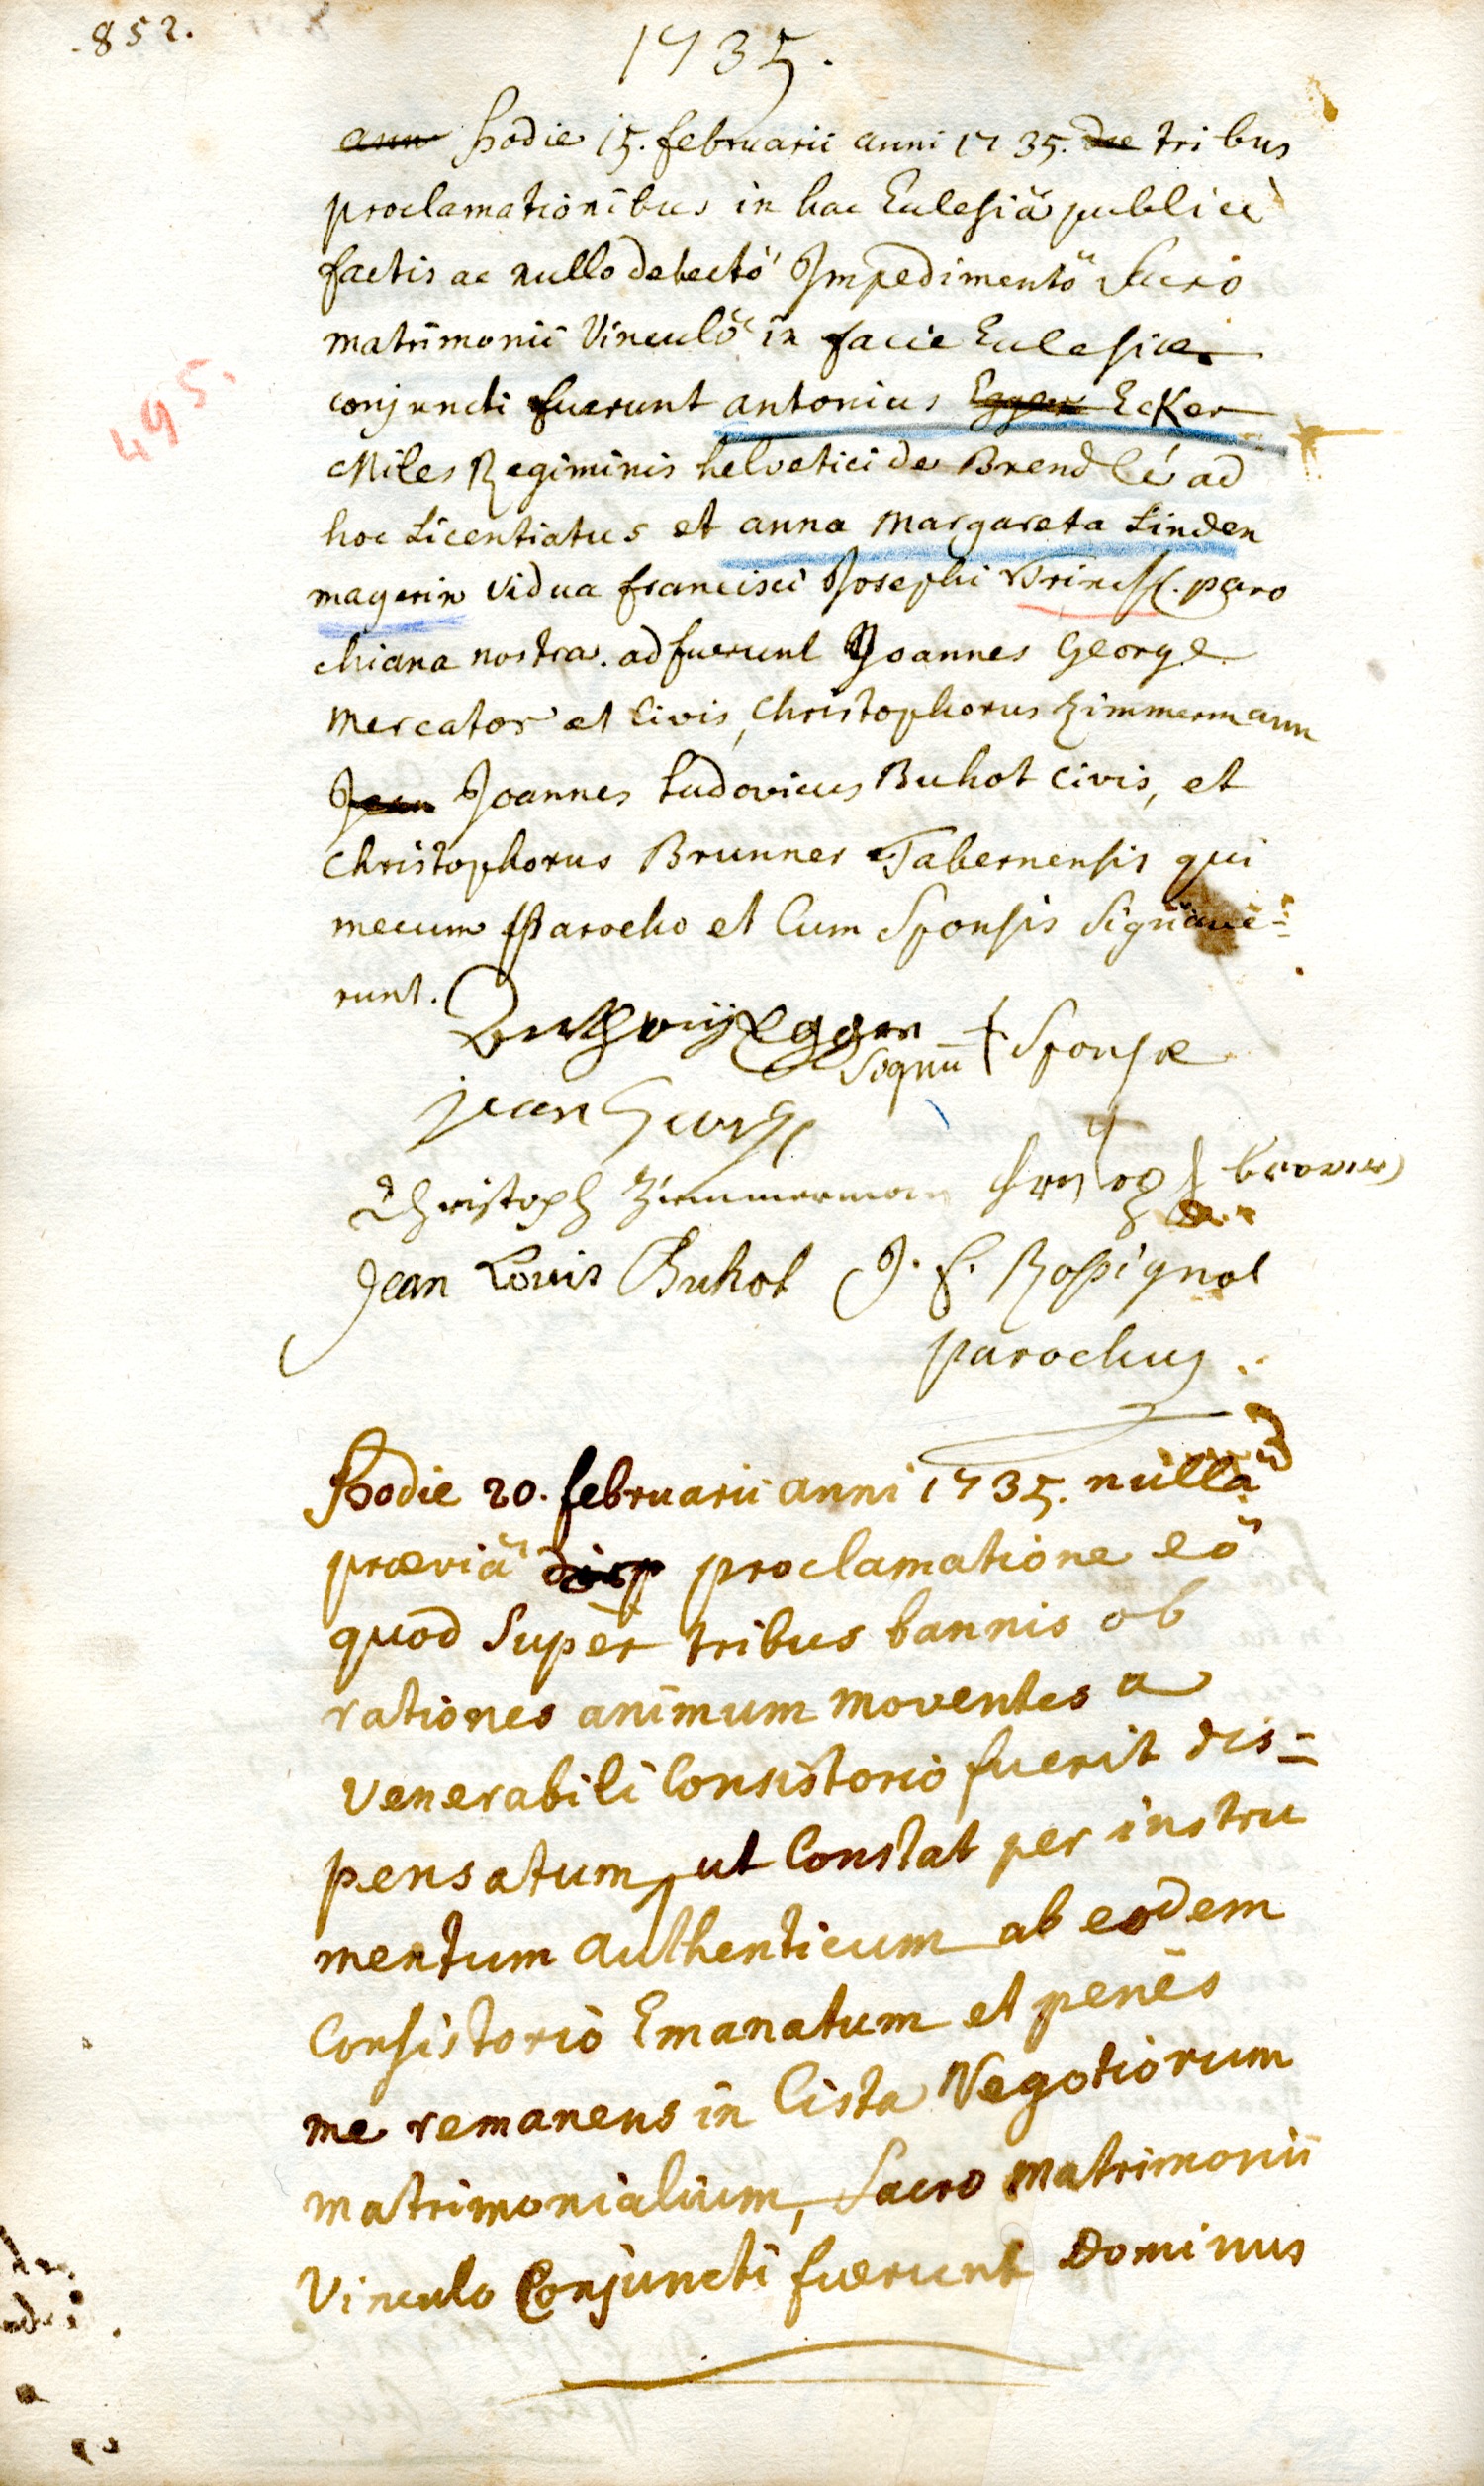 .852.
1735.
ann hodie 15. februarii anni 1735. due tribus
proclamationibus in hac Eclesiâ publicè
factis ac nullo detectô Impedimentô Sacro
matrimonii Vinculô in facie Eclesiae
495.
conjuncti fuerunt antonius Egger EcKer
Miles Regiminis helvetici de Brendlé ad
hoc Licentiatus et anna Margareta Linden
mayerin vidua francisci Josephi paro
chiana nostra. adfuerunt Joannes George
mercator et Civis, Christophorus Zimmermann
Jean Joannes Ludovicus Buhot civis, et
Christophorus Brunner Tabernensis qui
mecum Parocho et Cum Sponsis Signave=
runt.
Egger Signū + Sponsae
jean
Christoph Zimmermann
Jean Louis Buhot J. f. Rossignol
parochus
hodie 20. februarii anni 1735. nullâ
praeviâ disp proclamatione eô
quod Super tribus bannis ob
rationes animum moventes a
Venerabili Consistorio fuerit dis=
pensatum, ut Constat per instru
mentum authenticum ab eodem
Consistorio Emanatum et penès
me remanens in Cista Negotiorum
matrimonialium, Sacro matrimonii
Vinculo Conjuncti fuerunt Dominus